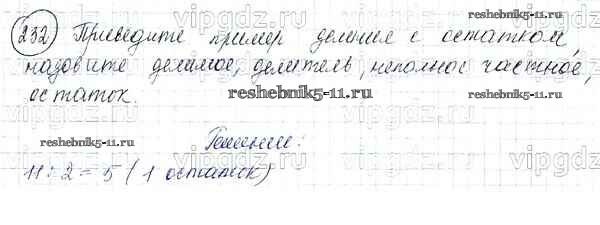 232) Приведите пример деления с остатком,
назовите делимое, делитель, неполное частное,
остаток.
Решение:
11 : 2 = 5 ( 1 остаток)
reshebnik5-11.ru
reshebnik5-11.ru
reshebnik5-11.ru
reshebnik5-11.ru
vipgdz.ru
vipgdz.ru
vipgdz.ru
vipgdz.ru
vipgdz.ru
vipgdz.ru